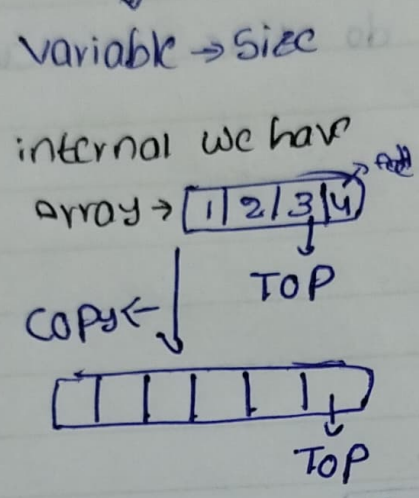 Variable → Size
internal we have
Array → 1 2 3 4
TOP
Copy ←
TOP